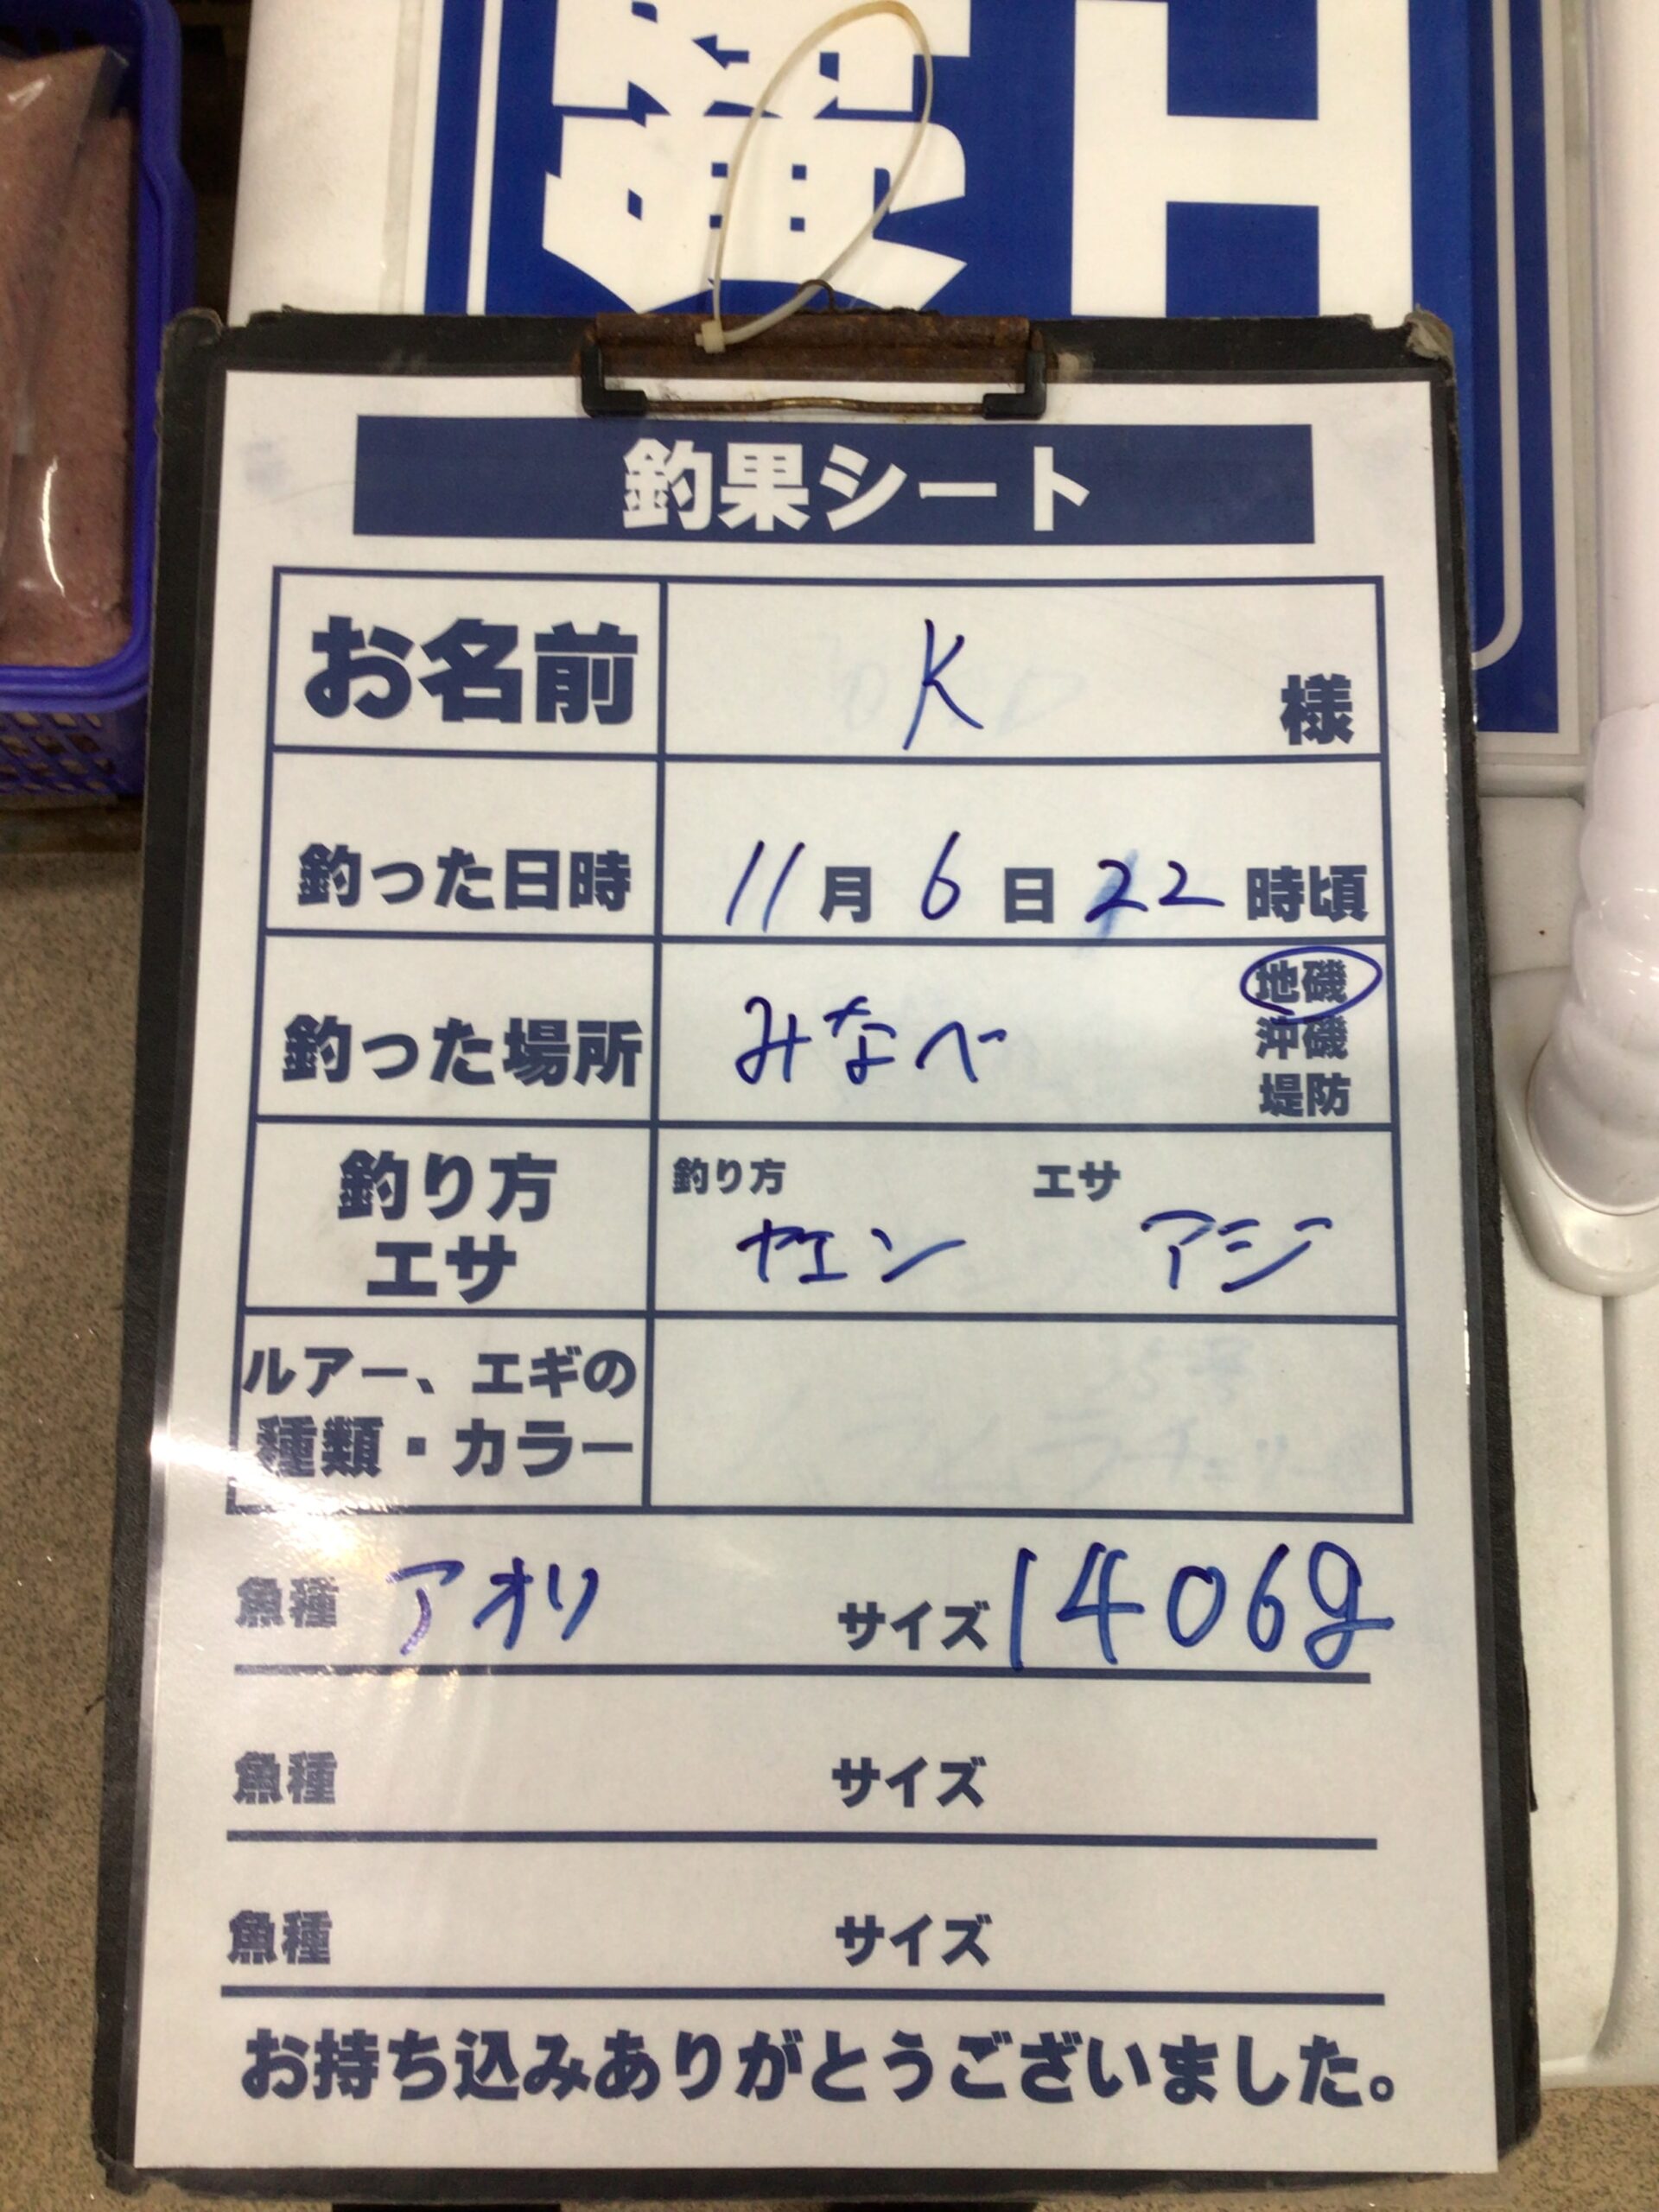 釣果シート
お名前 K 様
釣った日時 11月6日22時頃
釣った場所 みなべ 地磯
沖磯
堤防
釣り方 エサ
釣り方 ヤエン エサ アジ
ルアー、エギの
種類・カラー
魚種 アオリ サイズ 1406g
魚種 サイズ
魚種 サイズ
お持ち込みありがとうございました。